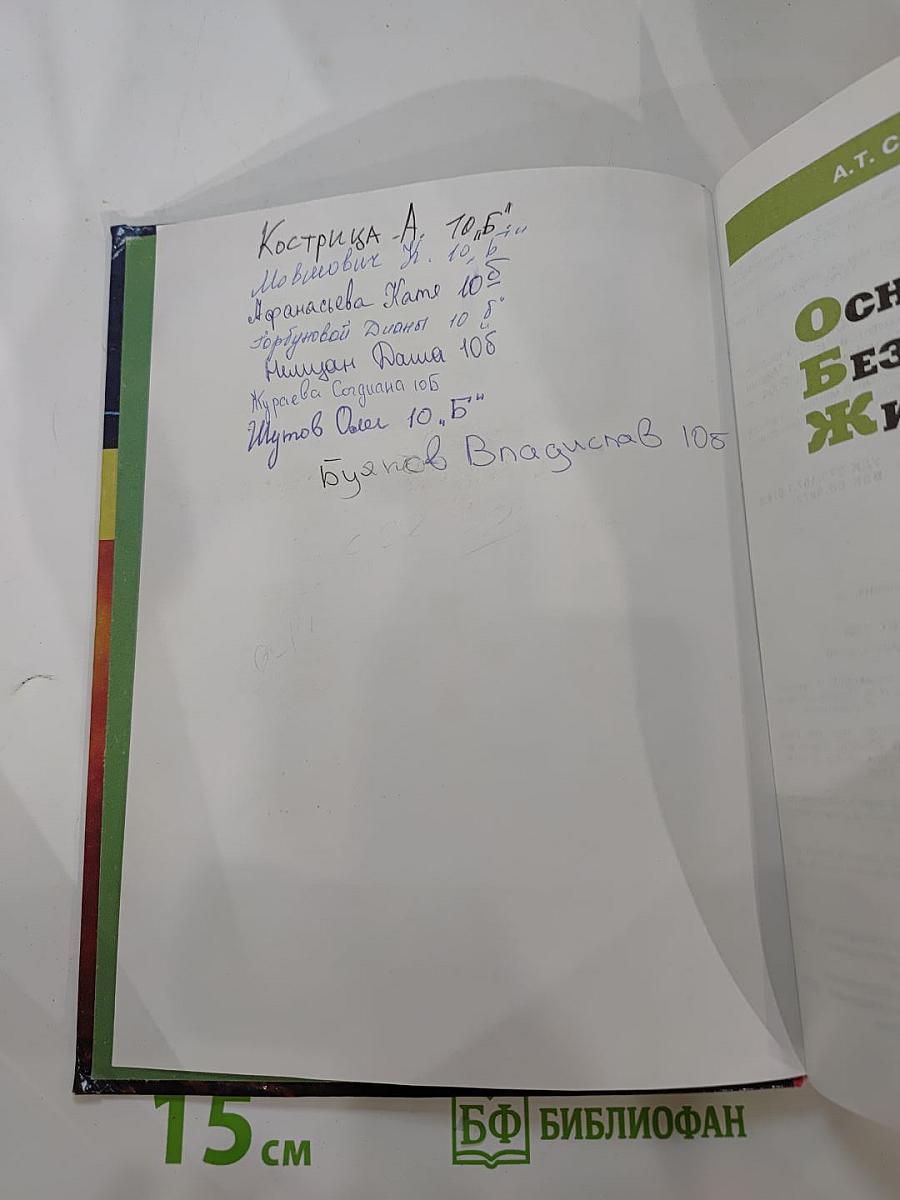 Кострица А. 10 „Б"
К. 10
Афанасьева Катя 10б
Горбуновой Дианы 10 „б"
Немцан Даша 10б
Жураева Согдиана 10Б
Шутов Олег 10 „Б"
Буянов Владислав 10б
А.Т. С
Осн
Без
Жи
15 см
БФ БИБЛИОФАН